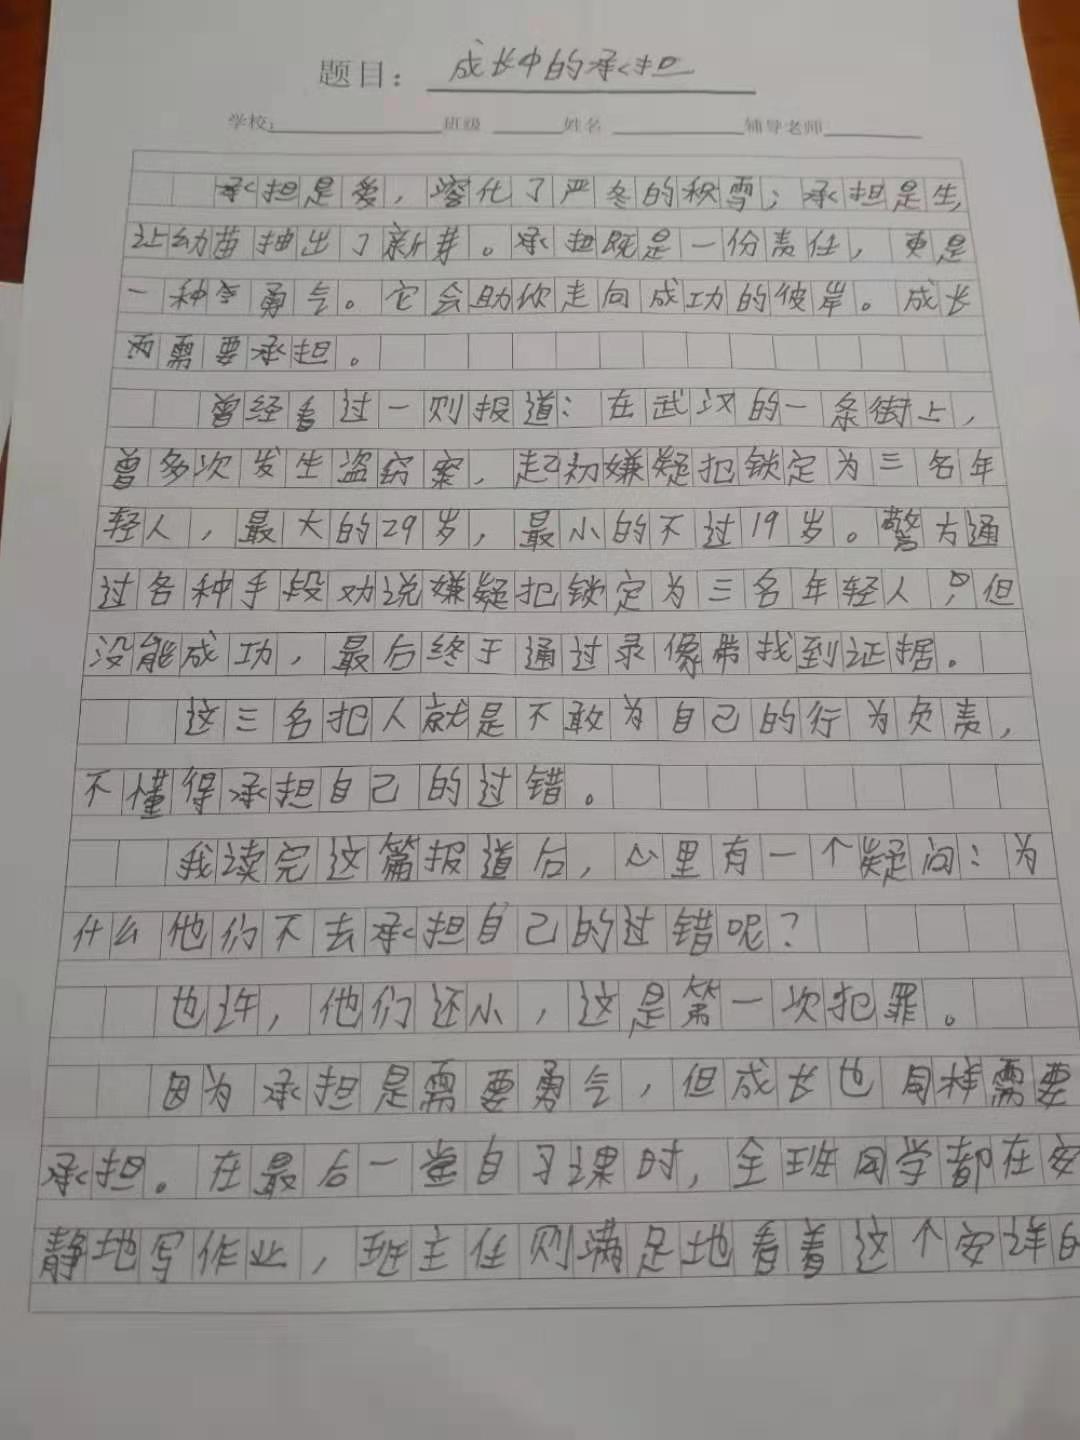 题目：成长中的承担
学校： 班级 姓名 辅导老师
承担是爱，溶化了严冬的积雪；承担是生，
让幼苗抽出了新芽。承担既是一份责任，更是
一种勇气。它会助你走向成功的彼岸。成长
需要承担。
曾经看过一则报道：在武汉的一条街上，
曾多次发生盗窃案，起初嫌疑犯锁定为三名年
轻人，最大的29岁，最小的不过19岁。警方通
过各种手段劝说嫌疑犯锁定为三名年轻人，但
没能成功，最后终于通过录像带找到证据。
这三名犯人就是不敢为自己的行为负责，
不懂得承担自己的过错。
我读完这篇报道后，心里有一个疑问：为
什么他们不去承担自己的过错呢？
也许，他们还小，这是第一次犯罪。
因为承担是需要勇气，但成长也同样需要
承担。在最后一堂自习课时，全班同学都在安
静地写作业，班主任则满足地看着这个安详的